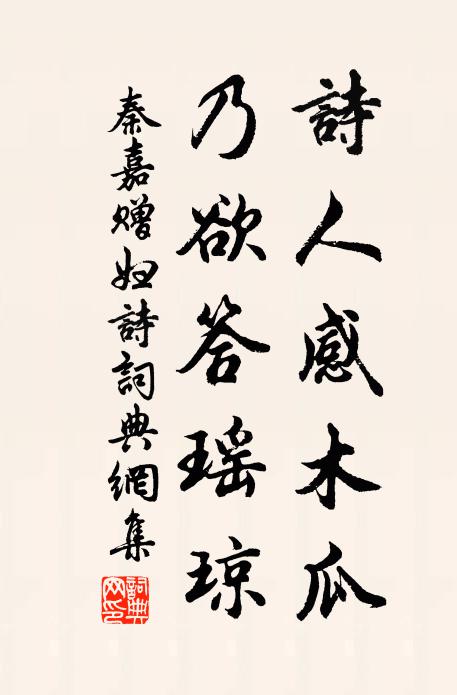 詩人感木瓜
乃欲答瑶琼
秦嘉赠妇詩詞典網集
詞典网印